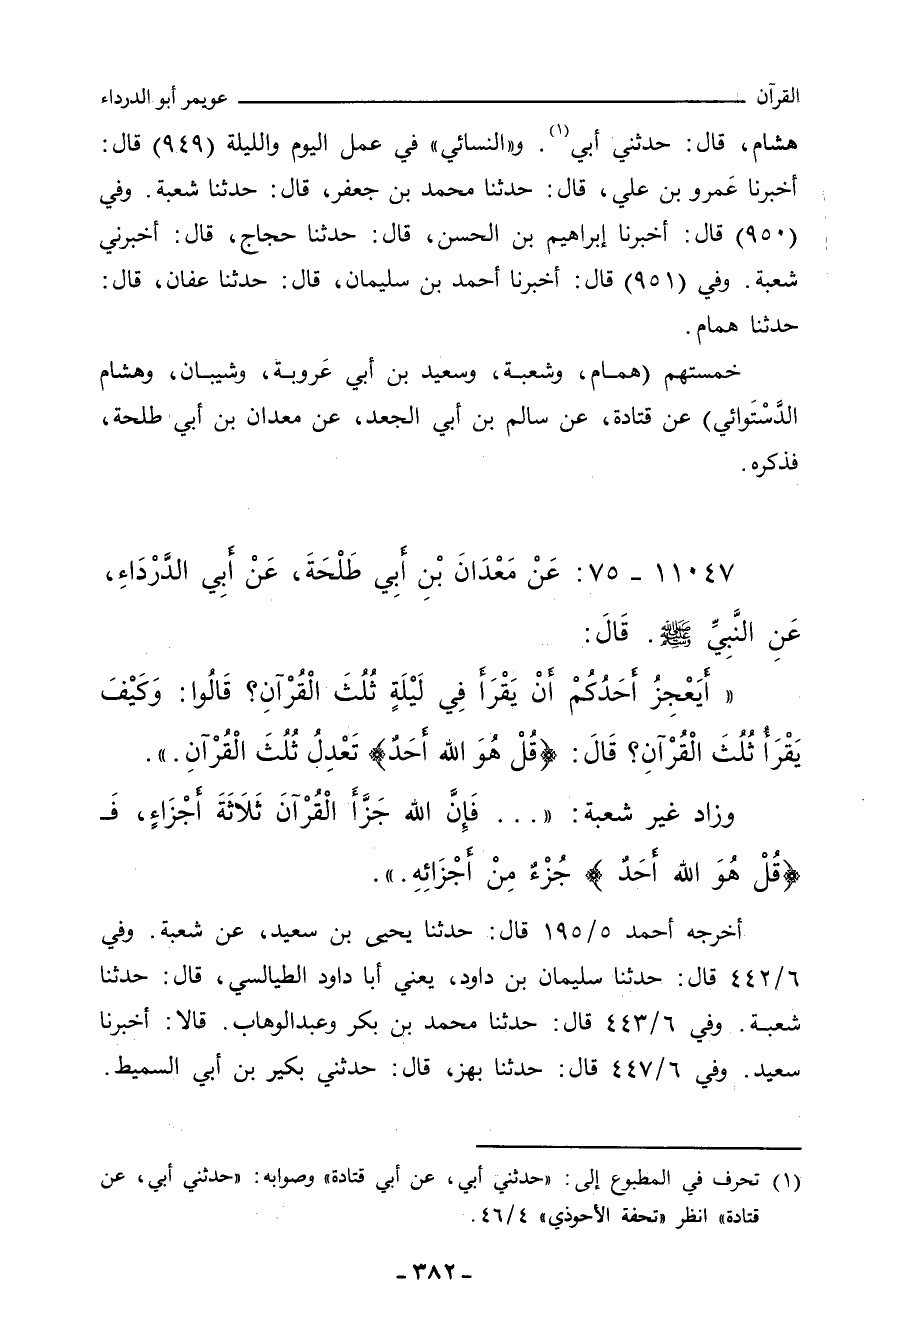 القرآن ـــــــــــــــــــــــــــــــ عويمر أبو الدرداء
هشام، قال: حدثني أبي(١). و«النسائي» في عمل اليوم والليلة (٩٤٩) قال:
أخبرنا عَمرو بن علي، قال: حدثنا محمد بن جعفر، قال: حدثنا شعبة. وفي
(٩٥٠) قال: أخبرنا إبراهيم بن الحسن، قال: حدثنا حجاج، قال: أخبرني
شعبة. وفي (٩٥١) قال: أخبرنا أحمد بن سليمان، قال: حدثنا عفان، قال:
حدثنا همام.
خمستهم (همام، وشعبة، وسعيد بن أبي عَروبة، وشيبان، وهشام
الدَّسْتَوائي) عن قتادة، عن سالم بن أبي الجعد، عن معدان بن أبي طلحة،
فذكره.
١١٠٤٧ - ٧٥: عَنْ مَعْدَانَ بْنِ أَبِي طَلْحَةَ، عَنْ أَبِي الدَّرْدَاءِ،
عَنِ النَّبِيِّ ﷺ. قَالَ:
« أَيَعْجِزُ أَحَدُكُمْ أَنْ يَقْرَأَ فِي لَيْلَةٍ ثُلُثَ الْقُرْآنِ؟ قَالُوا: وَكَيْفَ
يَقْرَأُ ثُلُثَ الْقُرْآنِ؟ قَالَ: ﴿قُلْ هُوَ الله أَحَدٌ﴾ تَعْدِلُ ثُلُثَ الْقُرْآنِ.».
وزاد غير شعبة: «... فَإِنَّ الله جَزَّأَ الْقُرْآنَ ثَلَاثَةَ أَجْزَاءٍ، فَـ
﴿قُلْ هُوَ الله أَحَدٌ ﴾ جُزْءٌ مِنْ أَجْزَائِهِ.».
أخرجه أحمد ١٩٥/٥ قال: حدثنا يحيى بن سعيد، عن شعبة. وفي
٤٤٢/٦ قال: حدثنا سليمان بن داود، يعني أبا داود الطيالسي، قال: حدثنا
شعبة. وفي ٤٤٣/٦ قال: حدثنا محمد بن بكر وعبدالوهاب. قالا: أخبرنا
سعيد. وفي ٤٤٧/٦ قال: حدثنا بهز، قال: حدثني بكير بن أبي السميط.
(١) تحرف في المطبوع إلى: «حدثني أبي، عن أبي قتادة» وصوابه: «حدثني أبي، عن
قتادة» انظر «تحفة الأحوذي» ٤٦/٤.
- ٣٨٢ -